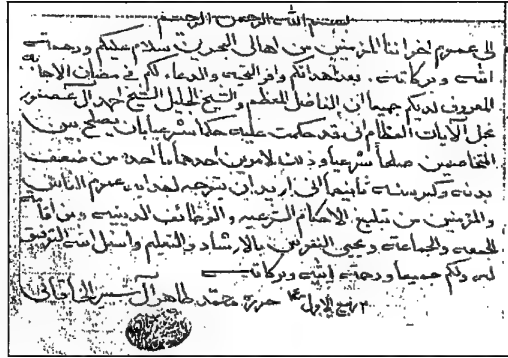 بسم الله الرحمن الرحيم
الى عموم اخواننا المؤمنين من اهالي البحرين سلام عليكم ورحمة
الله وبركاته. بعد اهدائكم وافر التحية والدعاء لكم في مضان الاجابة
المعروف لديكم جميعا ان الفاضل المعظم والشيخ الجليل الشيخ احمد آل عصفور
نجل الآيات العظام اني قد حكمت عليه حكما شرعيا بان يصلح بين
المتخاصمين صلحا شرعيا وذلك لامرين احدهما ما أجده من ضعف
بدنه وكبر سنه ثانيهما اني اريد ان يتوجه لهداية عموم الناس
والمؤمنين من تبليغ الاحكام الشرعيه والوظائف الدينيه ومن اقامة
الجمعه والجماعه ونحيي النفوس بالارشاد والتعليم واسئل الله التوفيق
له ولكم جميعا ورحمة الله وبركاته
ربيع الاول حرره محمد طاهر آل شبير الخاقاني